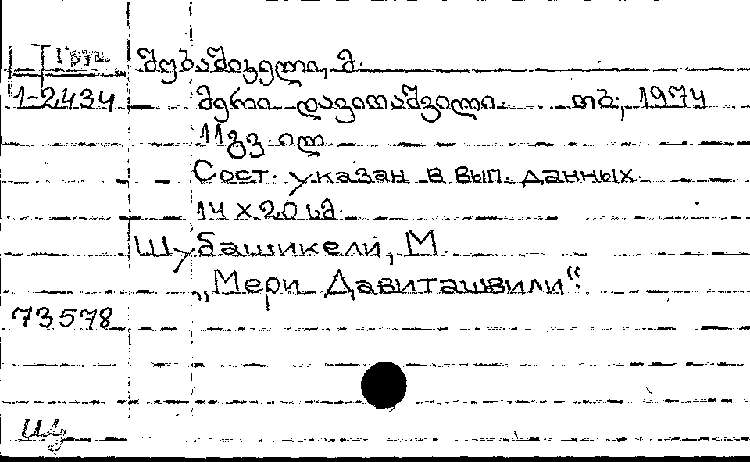 I Груз. შუბაშიკელი, მ.
1-2434 მერი დავითაშვილი. თბ., 1974
11გვ. ილ
Сост. указан в вып. данных
14 x 20 სმ.
Шубашикели, М
„Мери Давиташвили“.
73578
Шу